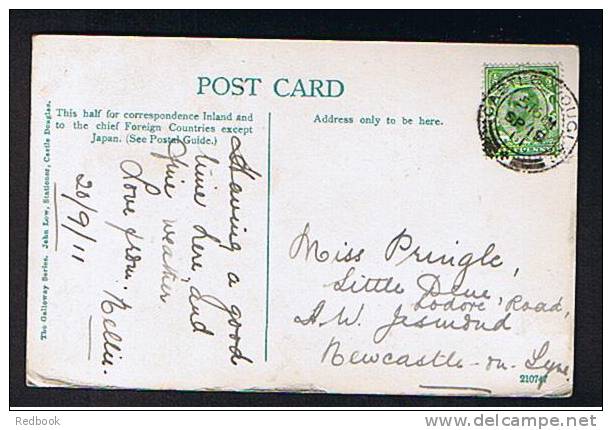 POST CARD
This half for correspondence Inland and
to the chief Foreign Countries except
Japan. (See Postal Guide.)
Address only to be here.
The Galloway Series. John Low, Stationer, Castle Douglas.
Having a good
time here, and
fine weather
Love from. Nellie.
20/9/11
Miss Pringle,
Little Dene,
Lodore, Road,
S. W. Jesmond
Newcastle-on-Tyne.
CASTLE DOUGL
SP
210747
Redbook
delcampe.net